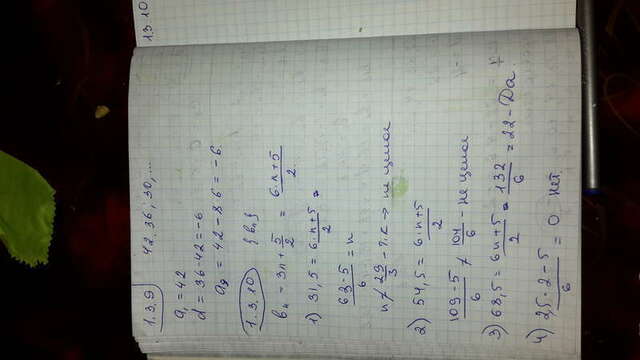 1.3.9 42, 36, 30, ...
a₁ = 42
d = 36-42 = -6
a₉ = 42 - 8·6 = -6
1.3.10 {bₙ}
bₙ = 3n + 5/2 = (6n+5)/2
1) 31,5 = (6·n+5)/2 =
(63-5)/6 = n
n ≠ 29/3 → не целое
2) 54,5 = (6·n+5)/2
(109-5)/6 ≠ 104/6 - не целое
3) 68,5 = (6n+5)/2 = 132/6 = 22 - Да.
4) (2,5·2-5)/6 = 0 нет.
13.10